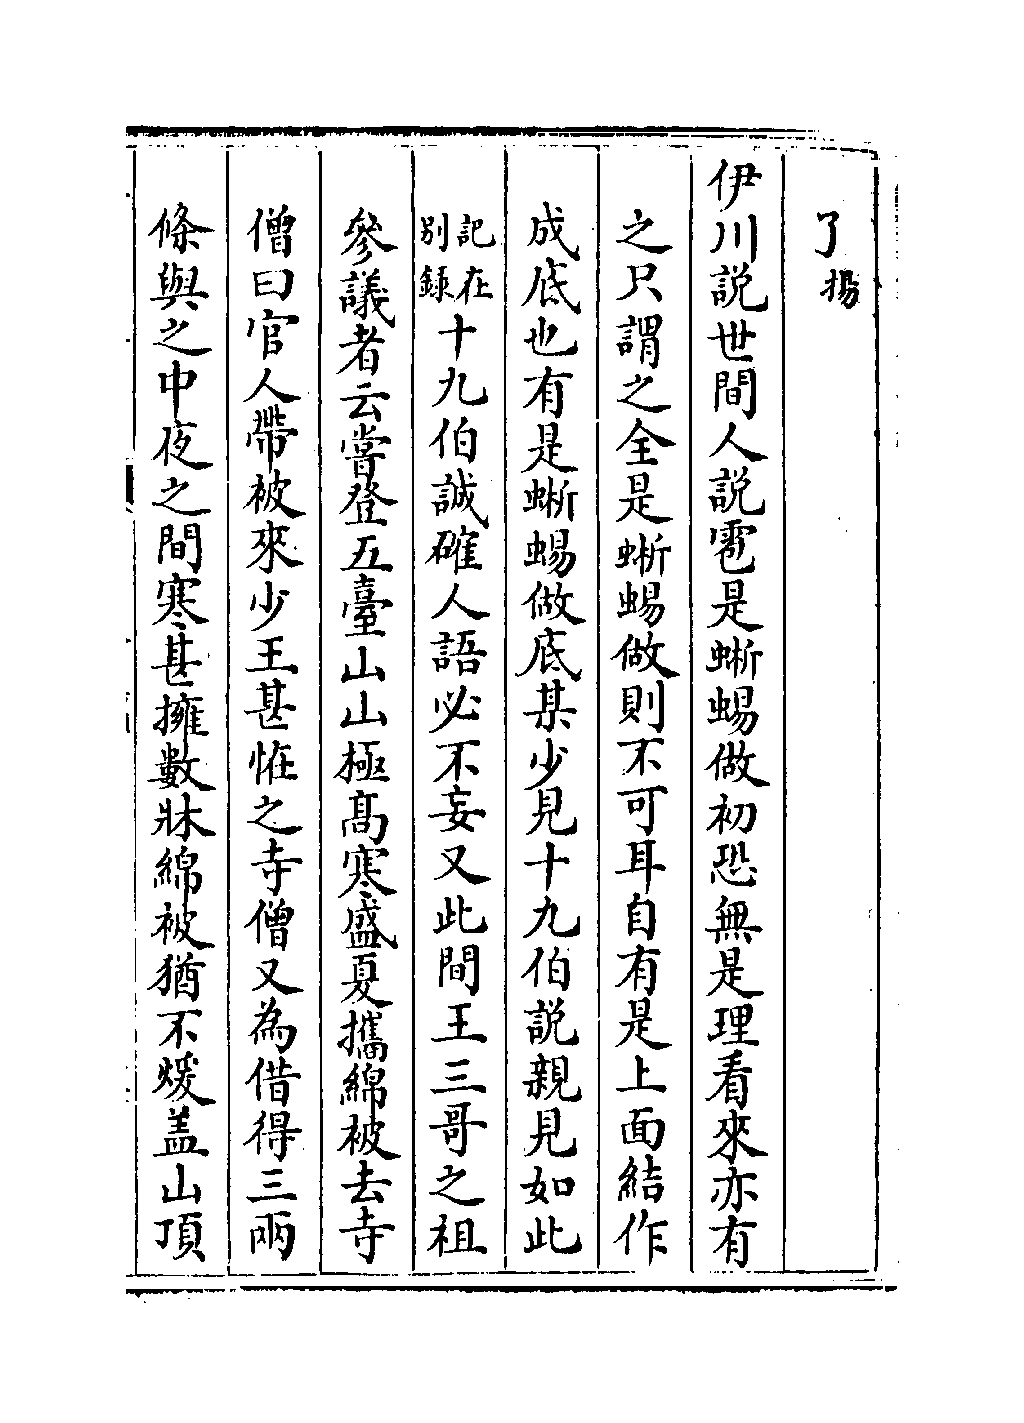 了揚
伊川說世間人說雹是蜥蜴做初恐無是理看來亦有
之只謂之全是蜥蜴做則不可耳自有是上面結作
成底也有是蜥蜴做底某少見十九伯說親見如此
記在別錄十九伯誠確人語必不妄又此間王三哥之祖
參議者云嘗登五臺山山極高寒盛夏攜綿被去寺
僧曰官人帶被來少王甚恠之寺僧又為借得三兩
條與之中夜之間寒甚擁數牀綿被猶不煖盖山頂